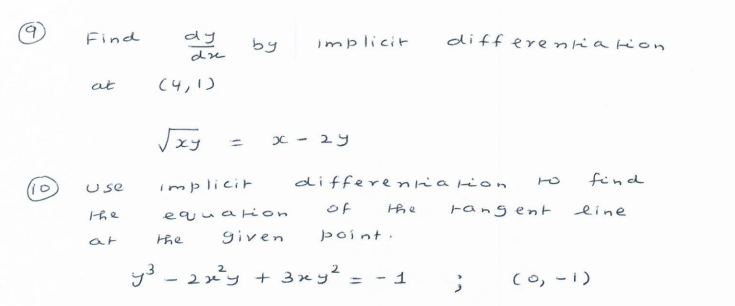 (9) Find dy/dx by implicit differentiation
at (4,1)
√xy = x - 2y
(10) Use implicit differentiation to find
the equation of the tangent line
at the given point.
y³ - 2x²y + 3xy² = -1 ; (0,-1)